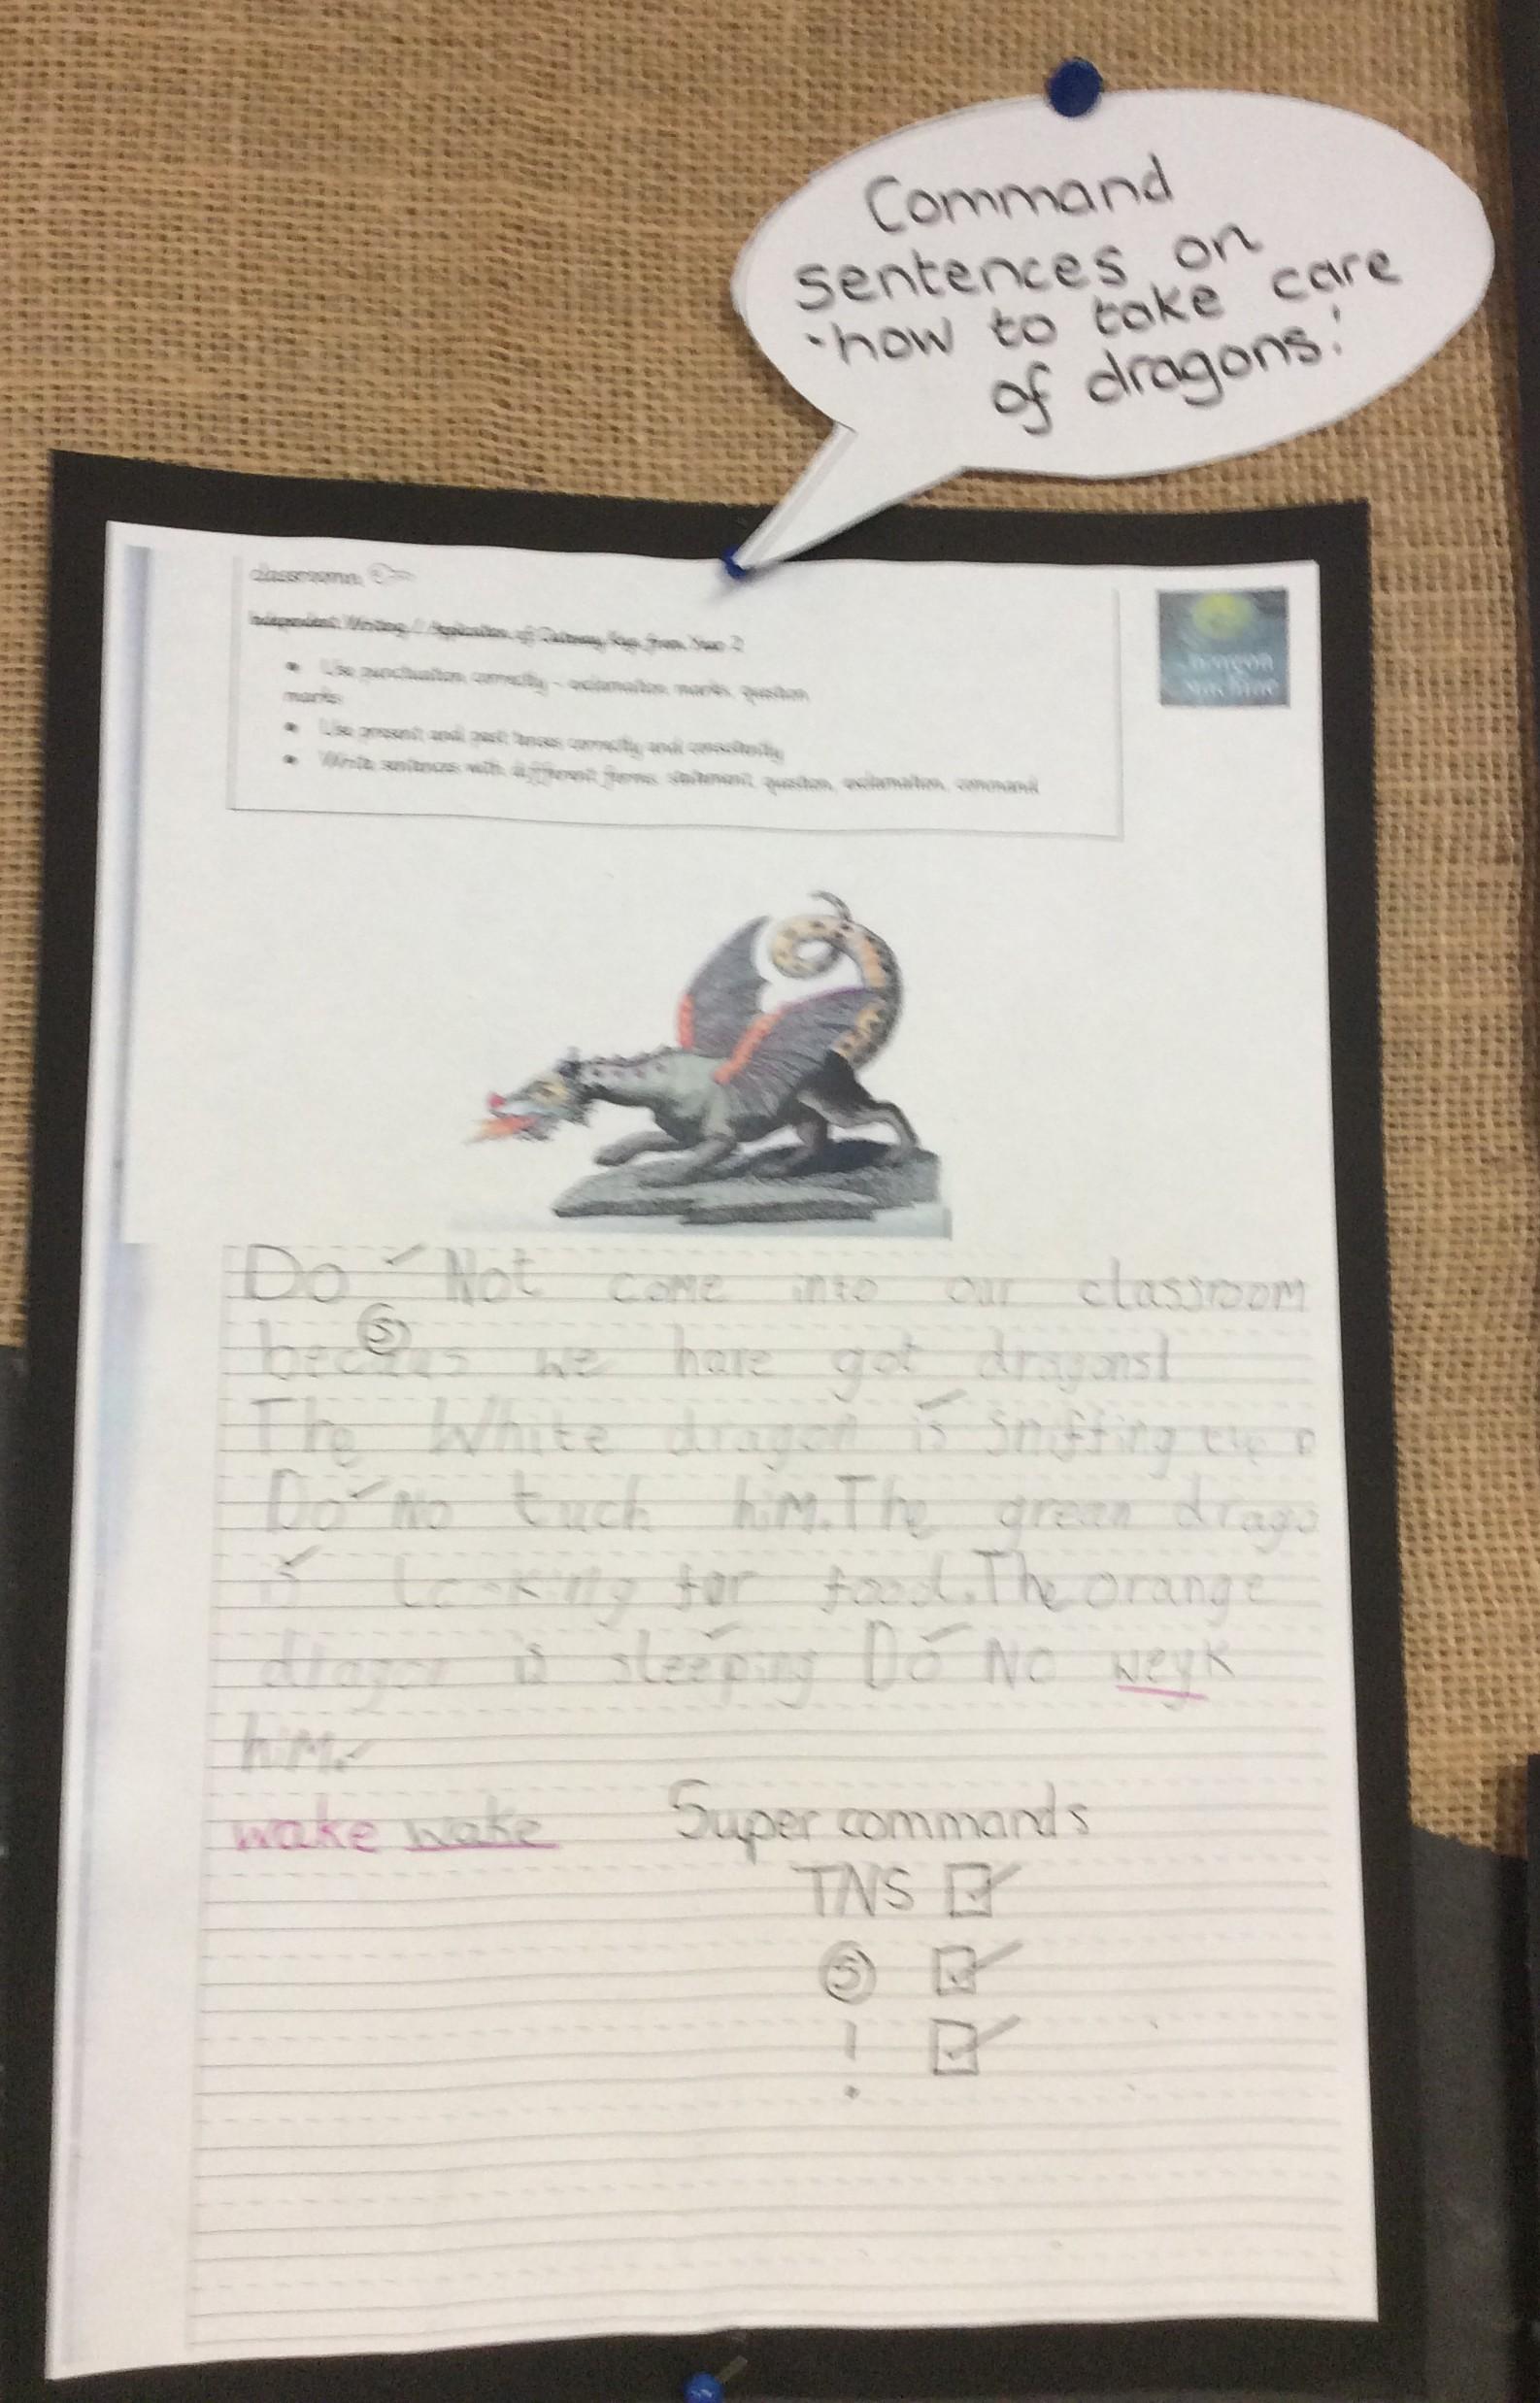 Command
sentences on
how to take care
of dragons!
classroom.
Independent Writing / Application of Gateway Keys from Year 2
Use punctuation correctly - exclamation marks, question
marks
Use present and past tenses correctly and consistently
Write sentences with different forms: statement, question, exclamation, command
Dragon
Machine
Do Not come into our classroom
S
becaus we have got dragons!
The White dragon is sniffing
Do No tuch him. The green drago
is looking for food. The orange
dragon is sleeping Do No weyk
him.
wake wake Super commands
TNS
S
!